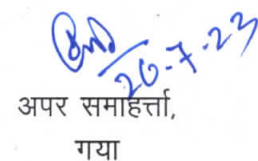 20-7-23
अपर समाहर्त्ता,
गया